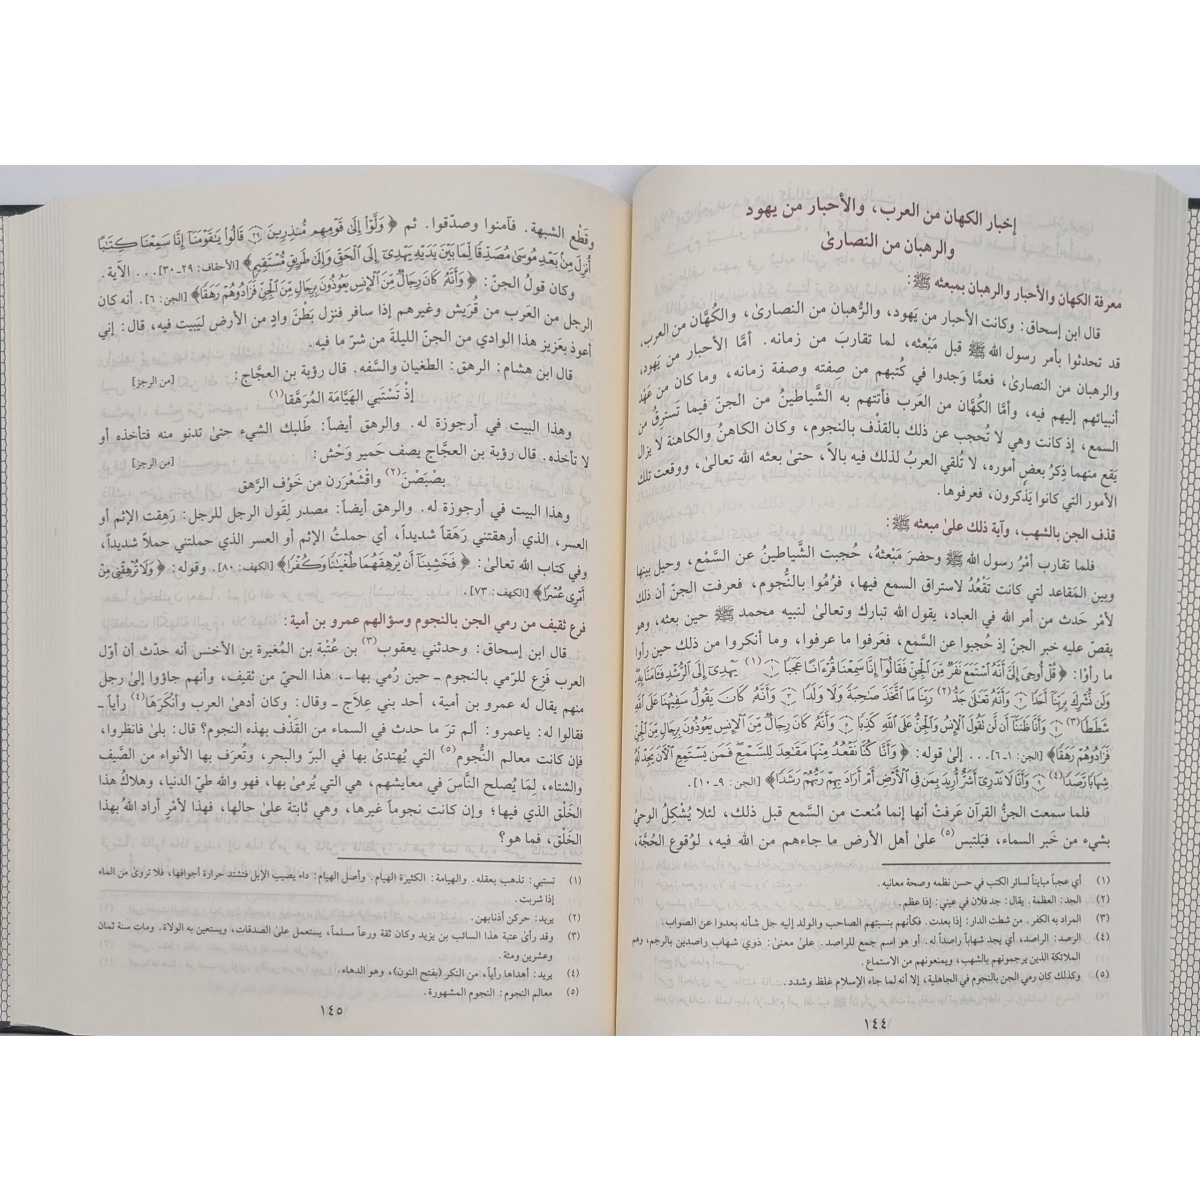 إخبار الكهان من العرب، والأحبار من يهود
والرهبان من النصارىٰ
معرفة الكهان والأحبار والرهبان بمبعثه ﷺ:
قال ابن إسحاق: وكانت الأحبار من يَهود، والرُّهبان من النصارىٰ، والكُهَّان من العرب،
قد تحدثوا بأمر رسول الله ﷺ قبل مَبْعثه، لما تقاربَ من زمانه. أمَّا الأحبار من يَهود،
والرهبان من النصارىٰ، فعمَّا وَجدوا في كُتبهم من صفته وصفة زمانه، وما كان من عَهْد
أنبيائهم إليهم فيه، وأمَّا الكُهَّان من العَرب فأتتهم به الشَّياطينُ من الجنّ فيما تَسترِقُ من
السمع، إذ كانت وهي لا تُحجب عن ذلك بالقذْف بالنجوم، وكان الكاهنُ والكاهنة لا يزال
يَقع منهما ذِكرُ بعض أموره، لا تُلقي العربُ لذلك فيه بالاً، حتىٰ بعثه الله تعالىٰ، ووقعت تلك
الأمور التي كانوا يَذْكرون، فعرفوها.
قذف الجن بالشهب، وآية ذلك علىٰ مبعثه ﷺ:
فلما تقارب أمْرُ رسول الله ﷺ وحضرَ مَبْعثهُ، حُجبت الشَّياطينُ عن السَّمْع، وحيل بينها
وبين المَقاعد لتي كانت تَقْعُد لاستراق السمع فيها، فرُمُوا بالنُّجوم، فعرفت الجنّ أن ذلك
لأمْر حَدث من أمر الله في العباد، يقول الله تبارك وتعالىٰ لنبيه محمد ﷺ حين بعثه، وهو
يقصّ عليه خبر الجنّ إذ حُجبوا عن السَّمع، فعَرفوا ما عرفوا، وما أنكروا من ذلك حين رأوا
ما رأوا: ﴿قُلْ أُوحِيَ إِلَيَّ أَنَّهُ ٱسْتَمَعَ نَفَرٌ مِّنَ ٱلْجِنِّ فَقَالُوٓا۟ إِنَّا سَمِعْنَا قُرْءَانًا عَجَبًا (١) يَهْدِىٓ إِلَى ٱلرُّشْدِ فَـَٔامَنَّا بِهِۦ
وَلَن نُّشْرِكَ بِرَبِّنَآ أَحَدًا وَأَنَّهُۥ تَعَٰلَىٰ جَدُّ (٢) رَبِّنَا مَا ٱتَّخَذَ صَٰحِبَةً وَلَا وَلَدًا وَأَنَّهُۥ كَانَ يَقُولُ سَفِيهُنَا عَلَى ٱللَّهِ
شَطَطًا (٣) وَأَنَّا ظَنَنَّآ أَن لَّن تَقُولَ ٱلْإِنسُ وَٱلْجِنُّ عَلَى ٱللَّهِ كَذِبًا وَأَنَّهُۥ كَانَ رِجَالٌ مِّنَ ٱلْإِنسِ يَعُوذُونَ بِرِجَالٍ مِّنَ ٱلْجِنِّ
فَزَادُوهُمْ رَهَقًا﴾ [الجن: ١ـ٦]. . . إلىٰ قوله: ﴿وَأَنَّا كُنَّا نَقْعُدُ مِنْهَا مَقَٰعِدَ لِلسَّمْعِ فَمَن يَسْتَمِعِ ٱلْـَٔانَ يَجِدْ لَهُۥ
شِهَابًا رَّصَدًا (٤) وَأَنَّا لَا نَدْرِىٓ أَشَرٌّ أُرِيدَ بِمَن فِى ٱلْأَرْضِ أَمْ أَرَادَ بِهِمْ رَبُّهُمْ رَشَدًا﴾ [الجن: ٩ـ ١٠].
فلما سمعت الجنُّ القرآن عَرفتْ أنها إنما مُنعت من السَّمع قبل ذلك، لئلا يُشْكِلُ الوحيُ
بشيء من خَبر السماء، فيَلتبس (٥) علىٰ أهل الأرض ما جاءهم من الله فيه، لوُقوع الحُجَّة،
(١) أي عجباً مبايناً لسائر الكتب في حسن نظمه وصحة معانيه.
(٢) الجد: العظمة. يقال: جد فلان في عيني: إذا عظم.
(٣) المراد به الكفر. من شطت الدار: إذا بعدت. فكأنهم بنسبتهم الصاحب والولد إليه جل شأنه بعدوا عن الصواب.
(٤) الرصد: الراصد، أي يجد شهاباً راصداً له. أو هو اسم جمع للراصد. علىٰ معنىٰ: ذوي شهاب راصدين بالرجم، وهم
الملائكة الذين يرجمونهم بالشهب، ويمنعونهم من الاستماع.
(٥) وكذلك كان رمي الجن بالنجوم في الجاهلية، إلا أنه لما جاء الإسلام غلظ وشدد.
١٤٤
وقَطْع الشبهة. فآمنوا وصدّقوا. ثم ﴿وَلَّوْا۟ إِلَىٰ قَوْمِهِم مُّنذِرِينَ ٢٩ قَالُوا۟ يَٰقَوْمَنَآ إِنَّا سَمِعْنَا كِتَٰبًا
أُنزِلَ مِنۢ بَعْدِ مُوسَىٰ مُصَدِّقًا لِّمَا بَيْنَ يَدَيْهِ يَهْدِىٓ إِلَى ٱلْحَقِّ وَإِلَىٰ طَرِيقٍ مُّسْتَقِيمٍ﴾ [الأحقاف: ٢٩ـ ٣٠]. . . الآية.
وكان قولُ الجنّ: ﴿وَأَنَّهُۥ كَانَ رِجَالٌ مِّنَ ٱلْإِنسِ يَعُوذُونَ بِرِجَالٍ مِّنَ ٱلْجِنِّ فَزَادُوهُمْ رَهَقًا﴾ [الجن: ٦]. أنه كان
الرجل من العَرب من قُريش وغيرهم إذا سافر فنزل بَطْنَ وادٍ من الأرض ليَبيت فيه، قال: إني
أعوذ بعَزيز هذا الوادي من الجنّ الليلة من شرّ ما فيه.
قال ابن هشام: الرهق: الطغيان والسَّفه. قال رؤبة بن العجَّاج: [من الرجز]
إذْ تَسْتَبي الهَيَّامَة المُرَهَّقا(١)
وهذا البيت في أرجوزة له. والرهق أيضاً: طَلبك الشيء حتىٰ تدنو منه فتأخذه أو
لا تأخذه. قال رؤبة بن العجَّاج يصف حَمير وَحْش: [من الرجز]
بصْبَصْنَ(٢) واقْشَعْرَرن من خَوْف الرَّهق
وهذا البيت في أرجوزة له. والرهق أيضاً: مصدر لِقَول الرجل للرَّجل: رَهِقت الإثم أو
العسر، الذي أرهقتني رَهَقاً شديداً، أي حملتُ الإثم أو العسر الذي حملتني حملاً شديداً،
وفي كتاب الله تعالىٰ: ﴿فَخَشِينَآ أَن يُرْهِقَهُمَا طُغْيَٰنًا وَكُفْرًا﴾ [الكهف: ٨٠]. وقوله: ﴿وَلَا تُرْهِقْنِى مِنْ
أَمْرِى عُسْرًا﴾ [الكهف: ٧٣].
فزع ثقيف من رمي الجن بالنجوم وسؤالهم عمرو بن أمية:
قال ابن إسحاق: وحدثني يعقوب(٣) بن عُتْبة بن المُغيرة بن الأخنس أنه حدّث أن أوّل
العرب فَزِع للرّمي بالنجوم ـ حين رُمي بها ـ، هذا الحيّ من ثَقيف، وأنهم جاؤوا إلىٰ رجل
منهم يقال له عمرو بن أمية، أحد بني عِلاج ـ وقال: وكان أدهىٰ العرب وأنْكَرَها(٤) رأياً ـ
فقالوا له: ياعمرو: ألم ترَ ما حدث في السماء من القَذْف بهذه النجوم؟ قال: بلىٰ فانظروا،
فإن كانت معالم النُّجوم(٥) التي يُهتدىٰ بها في البرّ والبحر، وتُعرَف بها الأنواء من الصَّيف
والشتاء، لِمَا يُصلح النَّاسَ في معايشهم، هي التي يُرمىٰ بها، فهو والله طيّ الدنيا، وهلاكُ هذا
الخَلْق الذي فيها؛ وإن كانت نجوماً غيرها، وهي ثابتة علىٰ حالها، فهذا لأمْرٍ أراد اللهُ بهذا
الخَلْق، فما هو؟
(١) تستبي: تذهب بعقله. والهيامة: الكثيرة الهيام. وأصل الهيام: داء يصيب الإبل فتشتد حرارة أجوافها، فلا تروىٰ من الماء
إذا شربت.
(٢) يريد: حركن أذنابهن.
(٣) وقد رأىٰ عتبة هذا السائب بن يزيد وكان ثقة ورعاً مسلماً، يستعمل علىٰ الصدقات، ويستعين به الولاة. ومات سنة ثمان
وعشرين ومئة.
(٤) يريد: أهداها رأياً، من النكر (بفتح النون)، وهو الدهاء.
(٥) معالم النجوم: النجوم المشهورة.
١٤٥